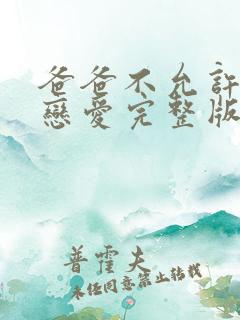 爸爸不允許
戀愛完整版
普霍夫
未經同意禁止轉載